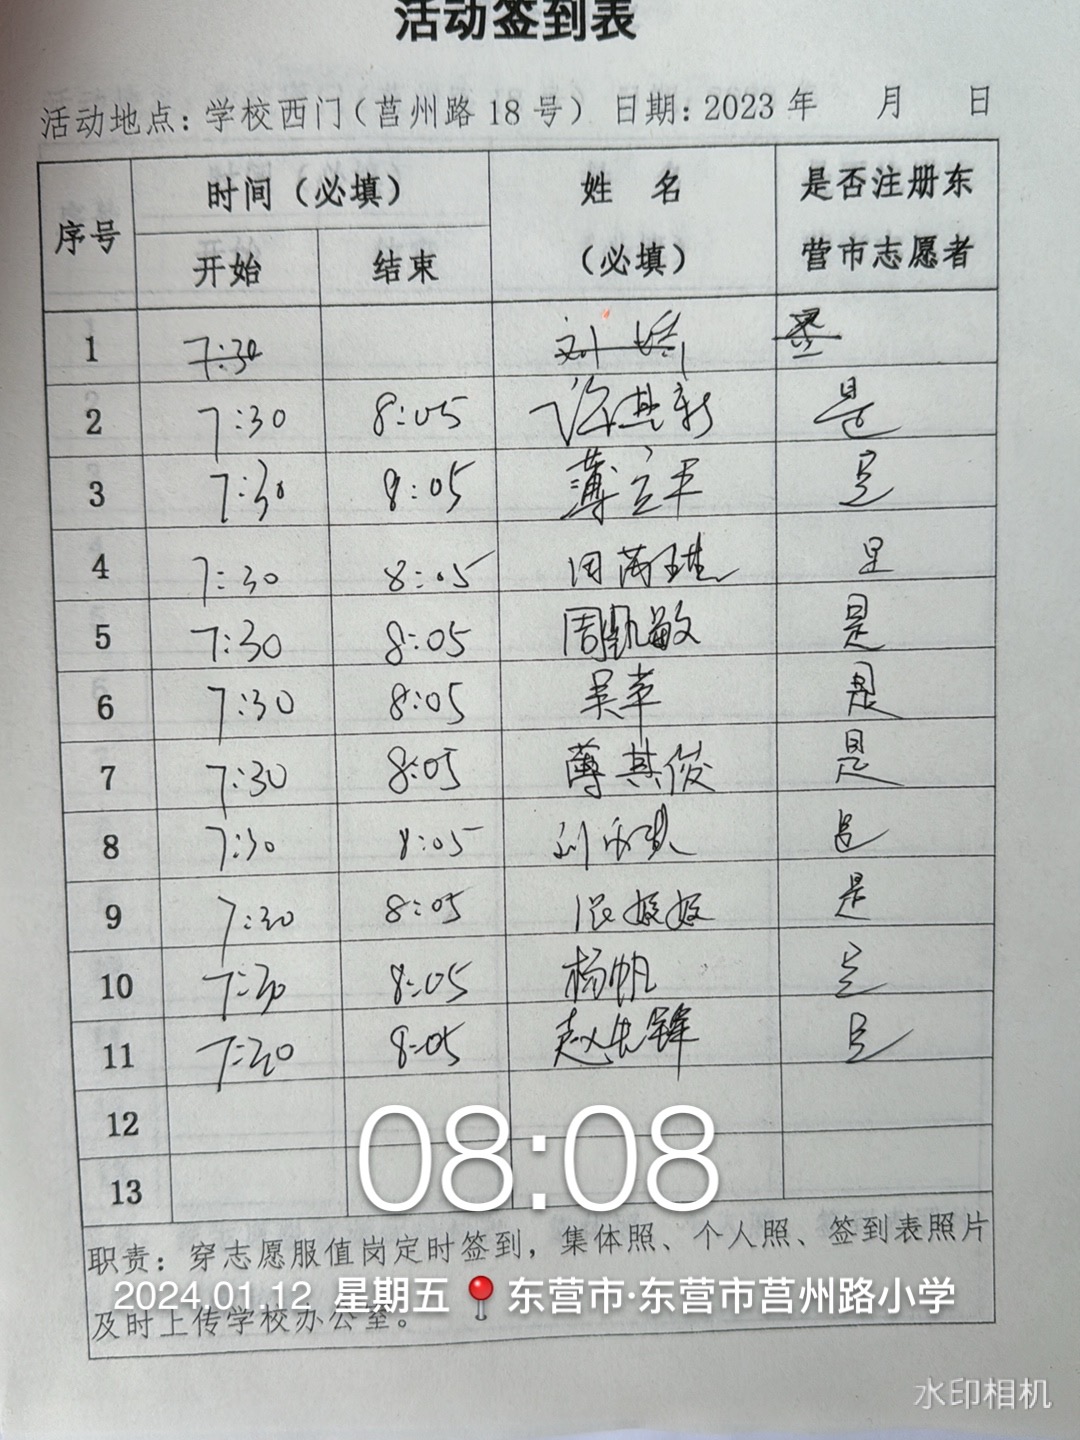 活动签到表
活动地点：学校西门（莒州路18号） 日期：2023年 月 日
序号 时间（必填） 姓 名（必填） 是否注册东营市志愿者
开始 结束
1 7:30 刘
2 7:30 8:05 许其新 是
3 7:30 8:05 薄立平 是
4 7:30 8:05 是
5 7:30 8:05 周凯敏 是
6 7:30 8:05 吴苹 是
7 7:30 8:05 薄其俊 是
8 7:30 8:05 刘 是
9 7:30 8:05 是
10 7:30 8:05 杨帆 是
11 7:30 8:05 赵先锋 是
12
13
08:08
职责：穿志愿服值岗定时签到，集体照、个人照、签到表照片
2024.01.12 星期五 东营市·东营市莒州路小学
及时上传学校办公室。
水印相机